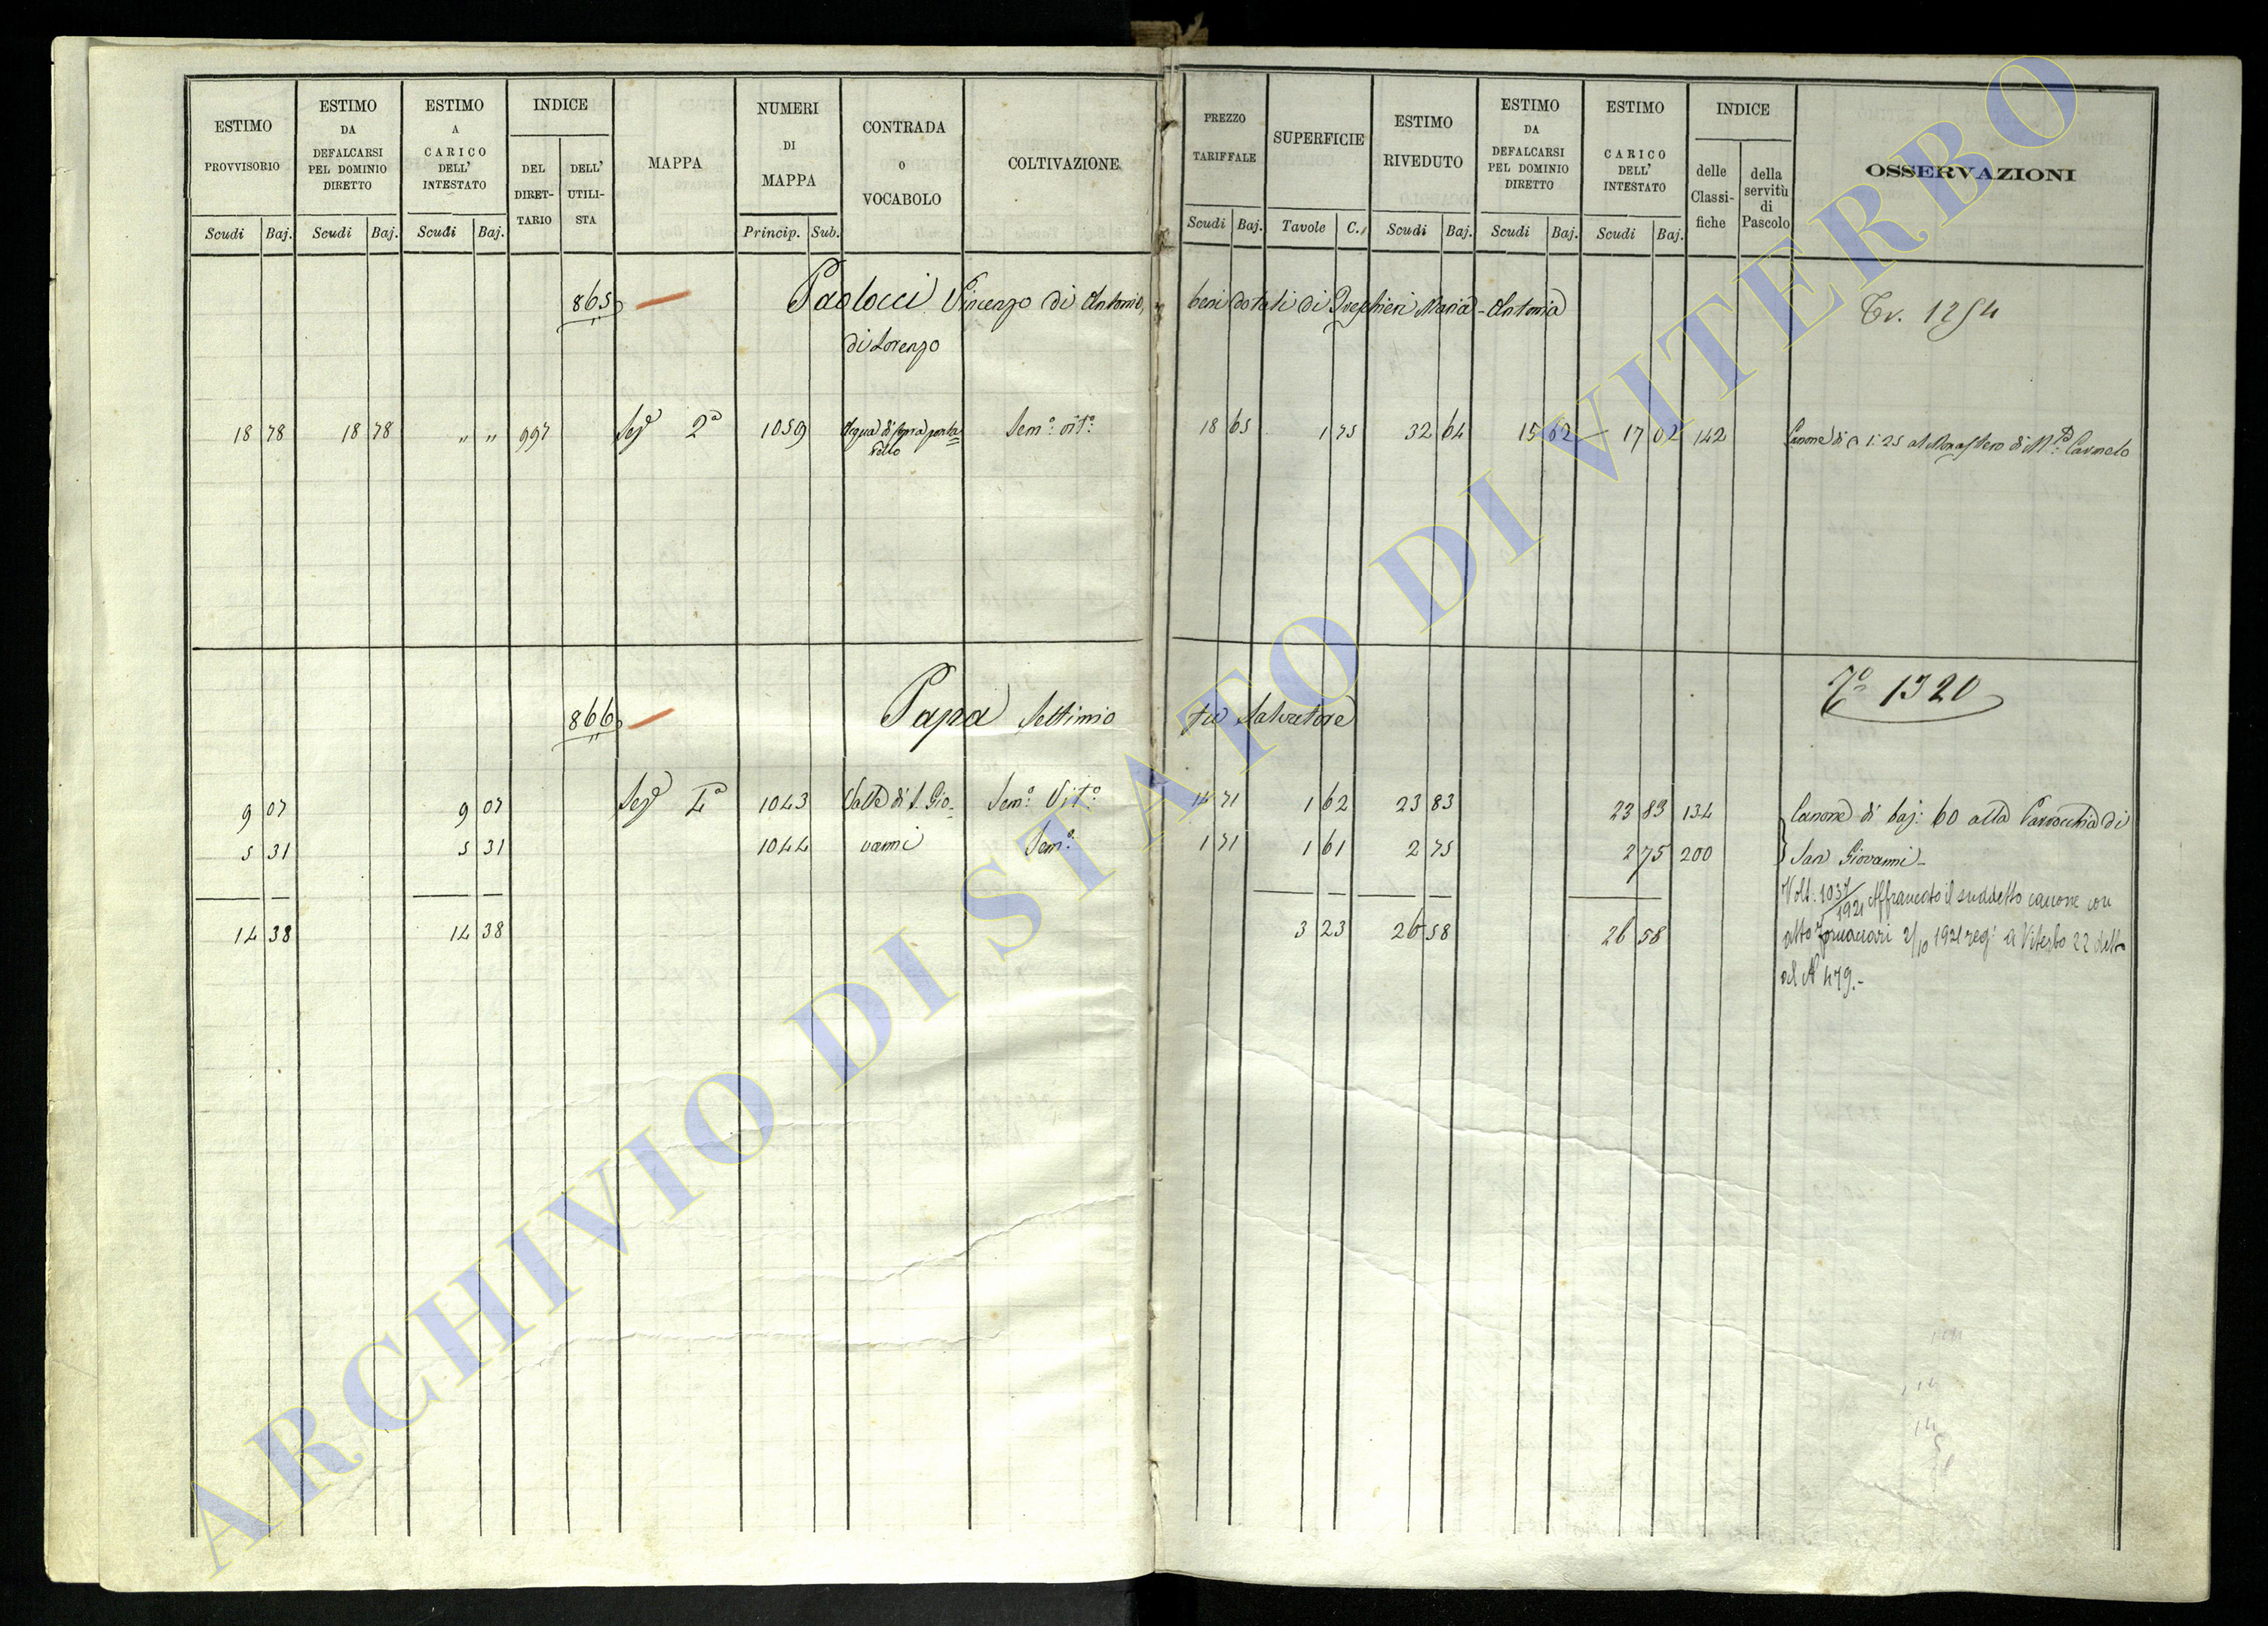 ESTIMO PROVVISORIO Scudi Baj.
ESTIMO DA DEFALCARSI PEL DOMINIO DIRETTO Scudi Baj.
ESTIMO A CARICO DELL' INTESTATO Scudi Baj.
INDICE DEL DIRET-TARIO DELL' UTILI-STA
MAPPA
NUMERI DI MAPPA Princip. Sub.
CONTRADA O VOCABOLO
COLTIVAZIONE
PREZZO TARIFFALE Scudi Baj.
SUPERFICIE Tavole C.
ESTIMO RIVEDUTO Scudi Baj.
ESTIMO DA DEFALCARSI PEL DOMINIO DIRETTO Scudi Baj.
ESTIMO A CARICO DELL' INTESTATO Scudi Baj.
INDICE delle Classi-fiche della servitù di Pascolo
OSSERVAZIONI
865 Paolocci Vincenzo di Antonio, beni dotali di Maria Antonia
di Lorenzo
18 78 18 78 " " 997 Sezᵉ 2ª 1059 Acqua di sopra Semº: vitº: 18 65 1 75 32 64 15 62 17 02 142 Canone di 1:25 al Monastero di Mᵗᵉ Carmelo
866 Papa Settimio fu Salvatore 1320
9 07 9 07 Sezᵉ 1043 Valle di S. Gio- Semº: Vitº: 14 71 1 62 23 83 23 83 134 Canone di baj: 60 alla Parrocchia di
5 31 5 31 1044 vanni Semº: 1 71 1 61 2 75 2 75 200 San Giovanni-
Volt. 1037/1921 Affrancato il suddetto canone con
14 38 14 38 3 23 26 58 26 58 atto 2/10 1921 reg: a Viterbo 22 detto
al N 479.-
ARCHIVIO DI STATO DI VITERBO